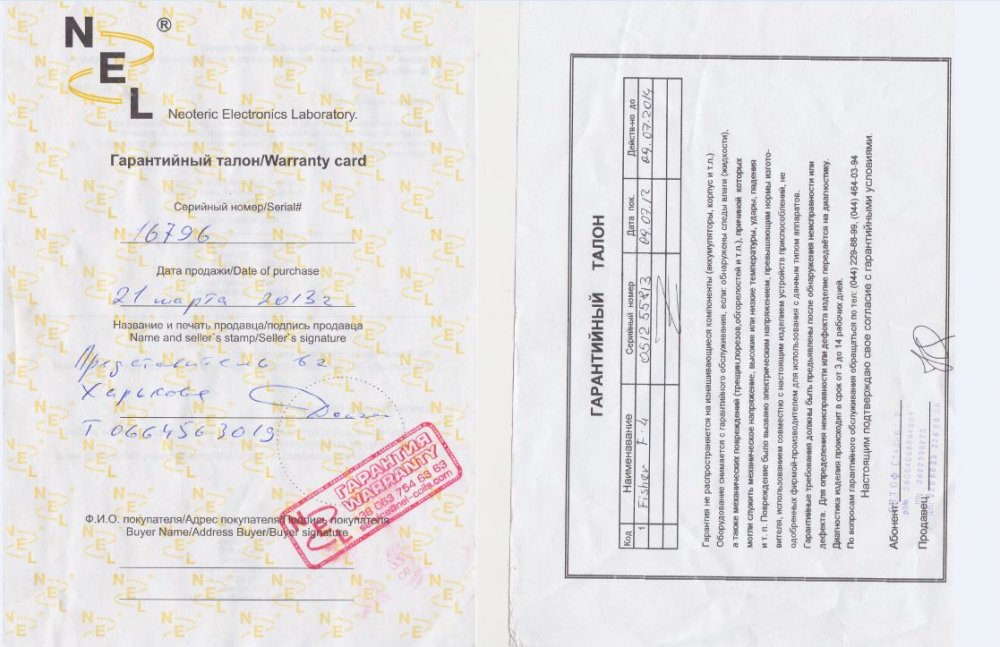 NEL®
Neoteric Electronics Laboratory.
Гарантийный талон/Warranty card
Серийный номер/Serial#
16796
Дата продажи/Date of purchase
21 марта 2013г
Название и печать продавца/подпись продавца
Name and seller`s stamp/Seller`s signature
Представитель в г
Харькове
Т 0664563019
ГАРАНТИЯ
WARRANTY
38 063 754 63 83
NEL
Ф.И.О. покупателя/Адрес покупателя/Подпись покупателя
Buyer Name/Address Buyer/Buyer signature
ГАРАНТИЙНЫЙ ТАЛОН
Код Наименавание Серийный номер Дата пок. Действ-но до
1 Fisher F-4 09.07.12 09.07.2014
Гарантия не распространяется на изнашивающиеся компоненты (аккумуляторы, корпус и т.п.)
Оборудование снимается с гарантийного обслуживания, если: обнаружены следы влаги (жидкости),
а также механических повреждений (трещин,порезов,обгорелостей и т.п.), причиной которых
могли служить механическое напряжение, высокие или низкие температуры, удары, падения
и т. п. Повреждение было вызвано электрическим напряжением, превышающим нормы изгото-
вителя, использованием совместно с настоящим изделием устройств приспособлений, не
одобренных фирмой-производителем для использования с данным типом аппаратов.
Гарантийные требования должны быть предъявлены после обнаружения неисправности или
дефекта. Для определения неисправности или дефекта изделие передаётся на диагностику.
Диагностика изделия происходит в срок от 3 до 14 рабочих дней.
По вопросам гарантийного обслуживания обращаться по тел: (044) 229-88-99, (044) 464-03-94
Настоящим подтверждаю свое согласие с гарантийными условиями.
Абонент
Продавец